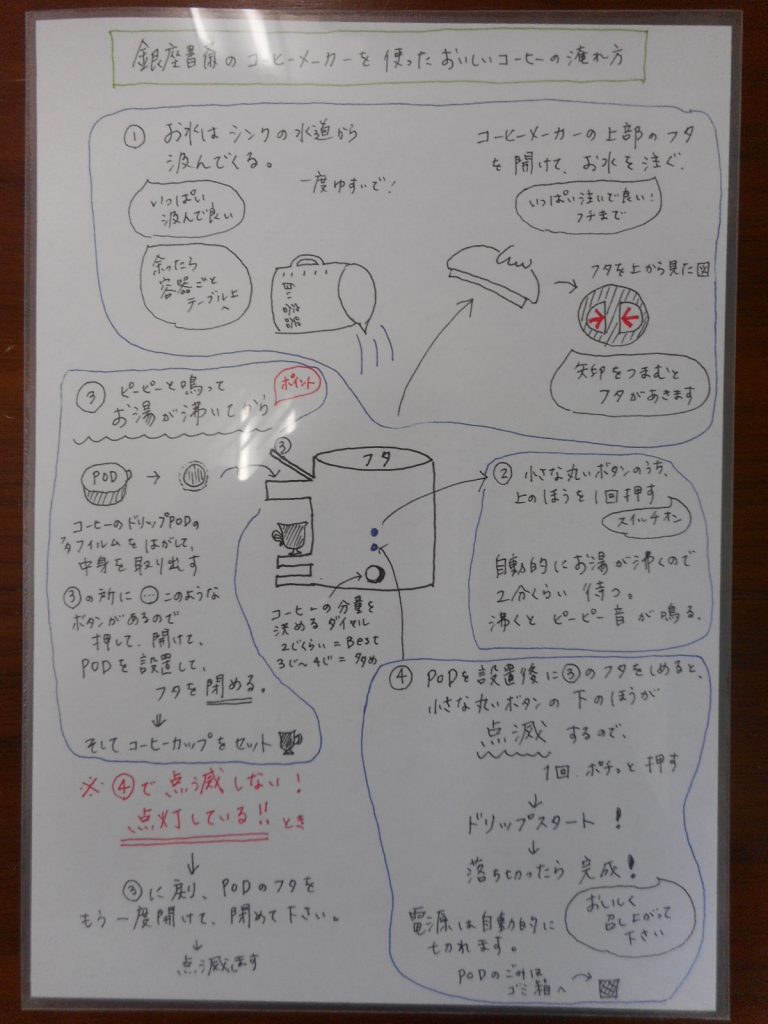 銀座書廊のコーヒーメーカーを使ったおいしいコーヒーの淹れ方
① お水はシンクの水道から
汲んでくる。
一度ゆすいで!
いっぱい
汲んで良い
余ったら
容器ごと
テーブル上
へ
白い容器
コーヒーメーカーの上部のフタ
を開けて、お水を注ぐ.
いっぱい注いで良い!
フチまで
フタを上から見た図
矢印をつまむと
フタがあきます
フタ
③
コーヒーの分量を
決めるダイヤル
2じくらい=Best
3じ~4じ=多め
② 小さな丸いボタンのうち、
上のほうを1回押す
スイッチオン
自動的にお湯が沸くので
2分くらい 待つ。
沸くと ピーピー音が鳴る.
③ ピーピーと鳴って
お湯が沸いてから
ポイント
POD
コーヒーのドリップPODの
フタフィルムをはがして、
中身を取り出す
③の所に このような
ボタンがあるので
押して、開けて、
PODを設置して、
フタを閉める。
そしてコーヒーカップをセット
④ PODを設置後に③のフタをしめると、
小さな丸いボタンの下のほうが
点滅するので、
1回 ポチっと押す
ドリップスタート!
落ち切ったら 完成!
おいしく
召し上がって
下さい
電源は自動的に
切れます。
PODのごみは
ゴミ箱へ
※④で点滅しない!
点灯している!! とき
③に戻り、PODのフタを
もう一度開けて、閉めて下さい。
点滅します